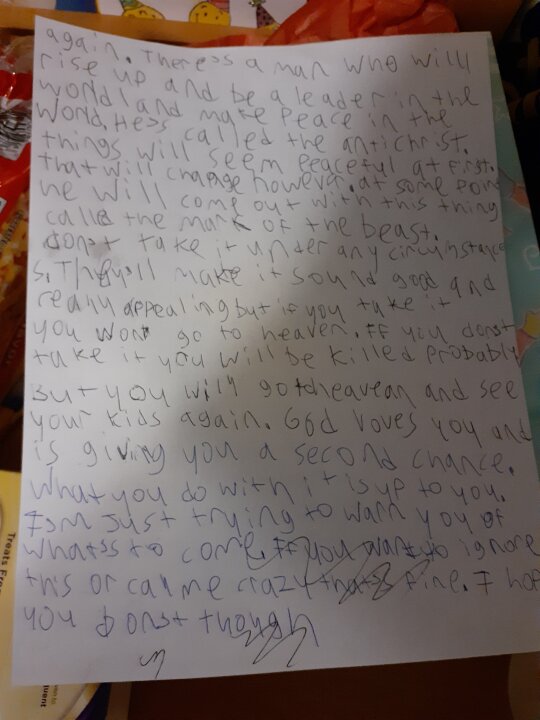 again. There's a man who will
rise up and be a leader in the
world and make peace in the
world. He's called the antichrist.
things will seem peaceful at first.
that will change however. at some poin
he will come out with this thing
called the mark of the beast.
don't take it under any circumstance
s. They'll make it sound good and
really appealing but if you take it
you won't go to heaven. If you don't
take it you will be killed probably
But you will go to heavean and see
your kids again. God loves you and
is giving you a second chance.
What you do with it is up to you.
I'm just trying to warn you of
what's to come. If you want to ignore
this or call me crazy that's fine. I hop
you don't though
Treats Fre
quent